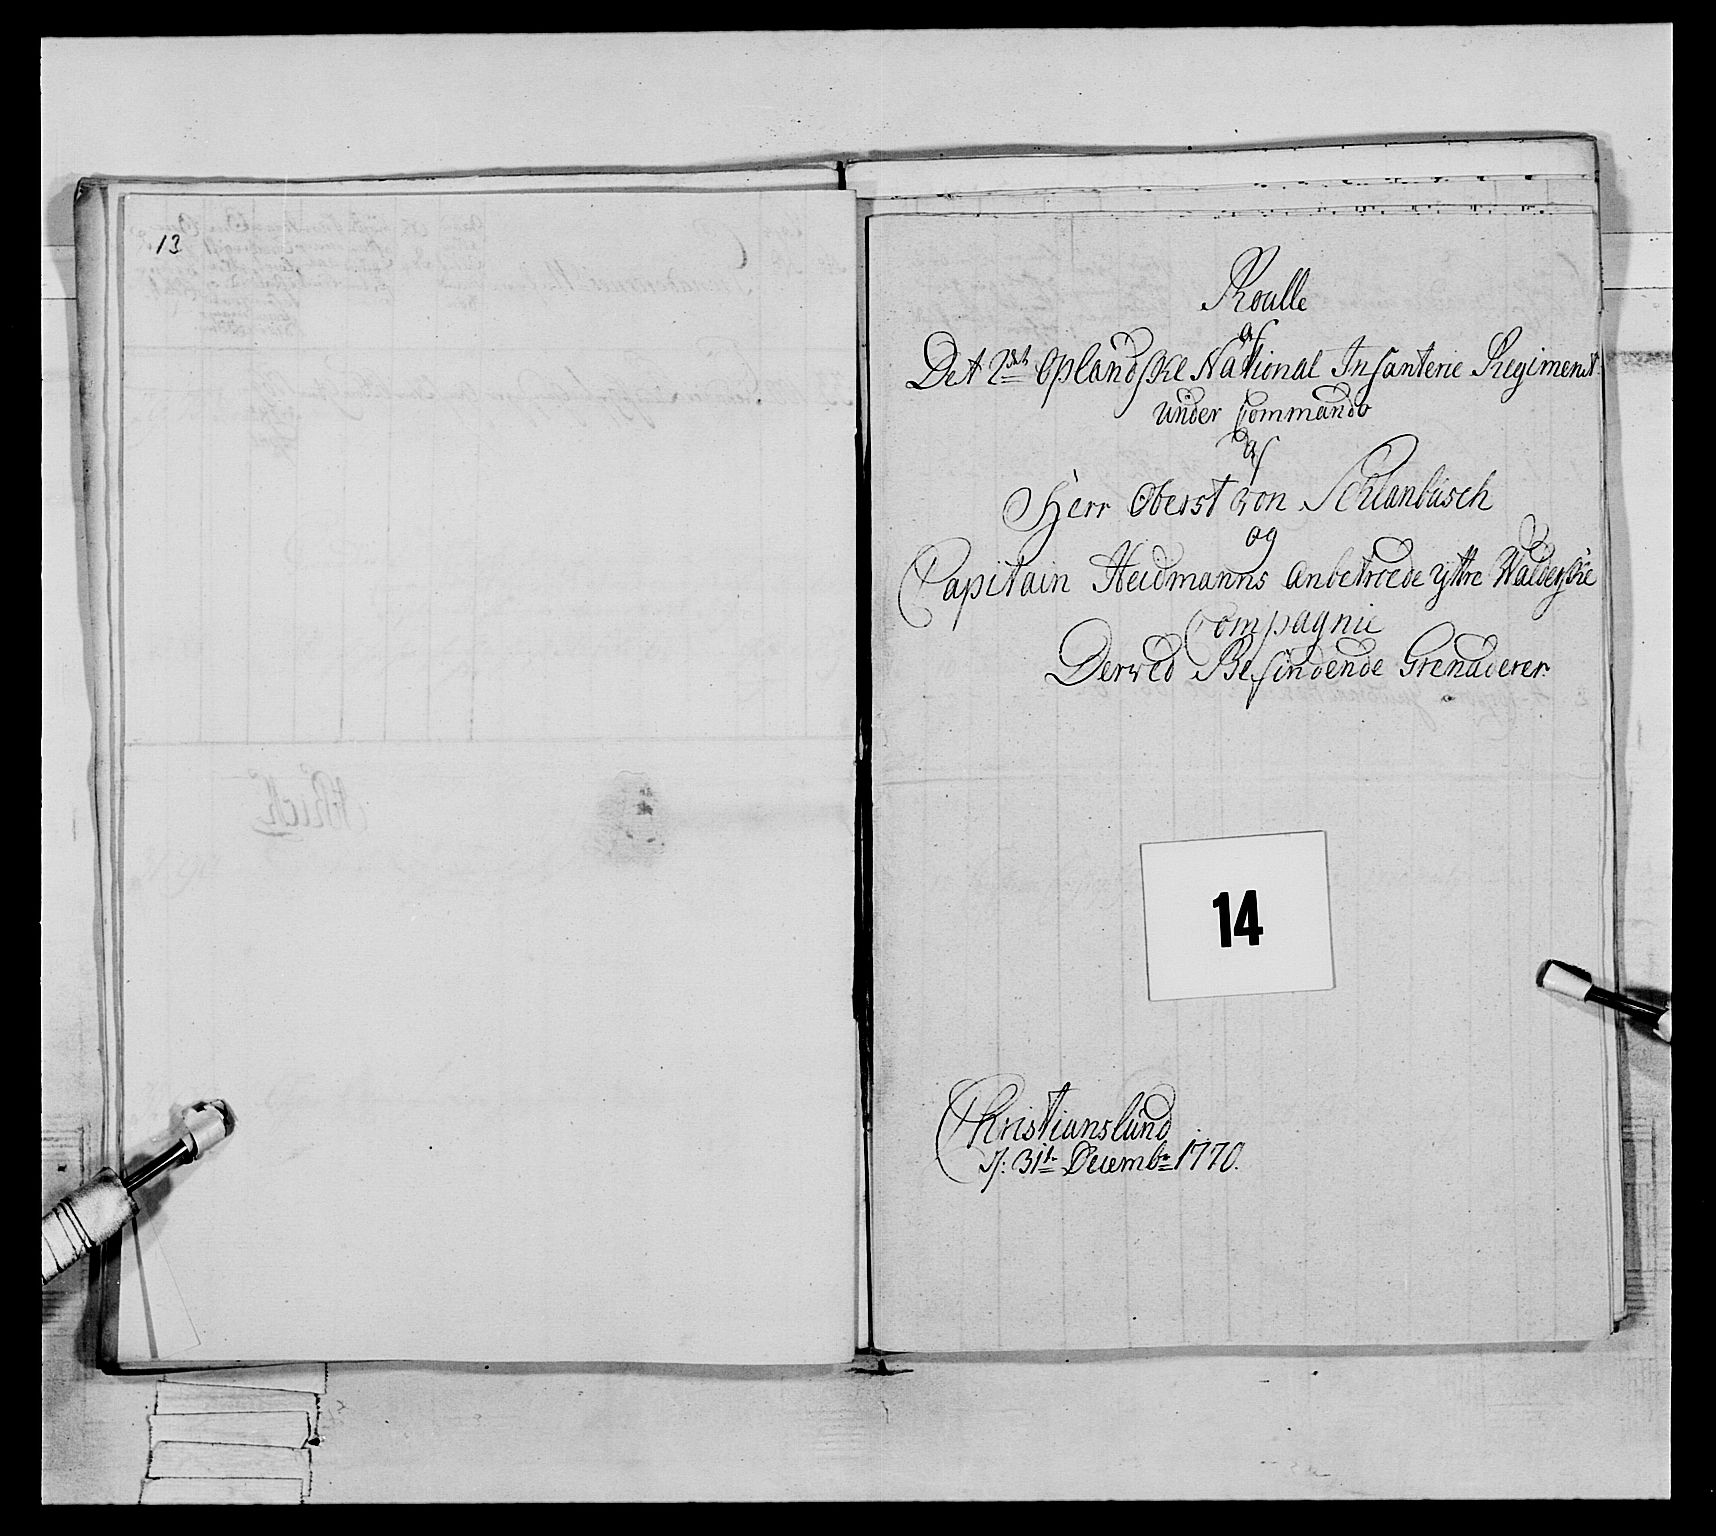 13
Roulle
af
Det 2det Oplandske National Infanterie Regiment
under Commando
af
Herr Oberst von Schlanbusch
og
Capitain Heidmanns Anbetroede yttre Walderske
Compagnie
Derved Befindende Grenaderer
14
Christianslund
d: 31te Decembr 1770.